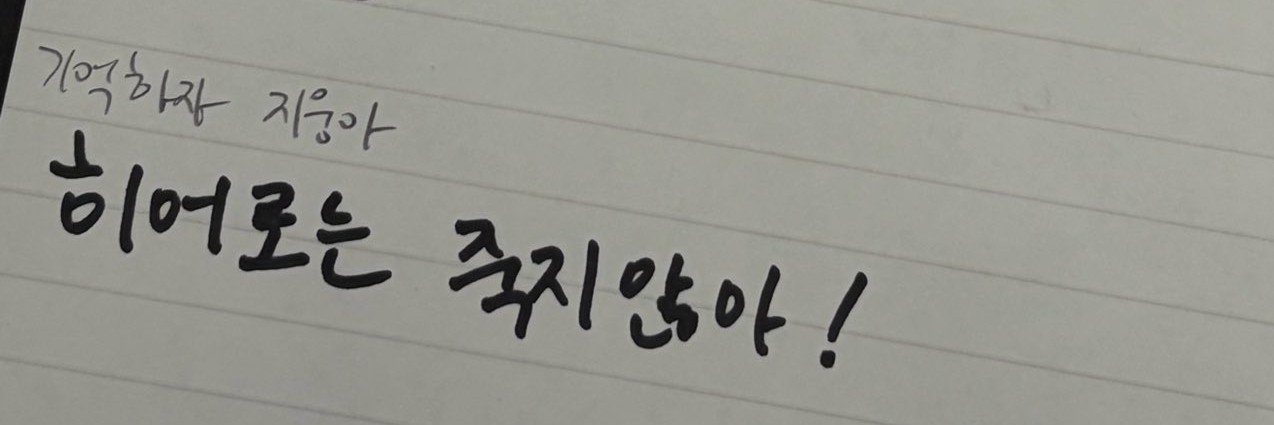 기억하자 지웅아
히어로는 죽지않아!